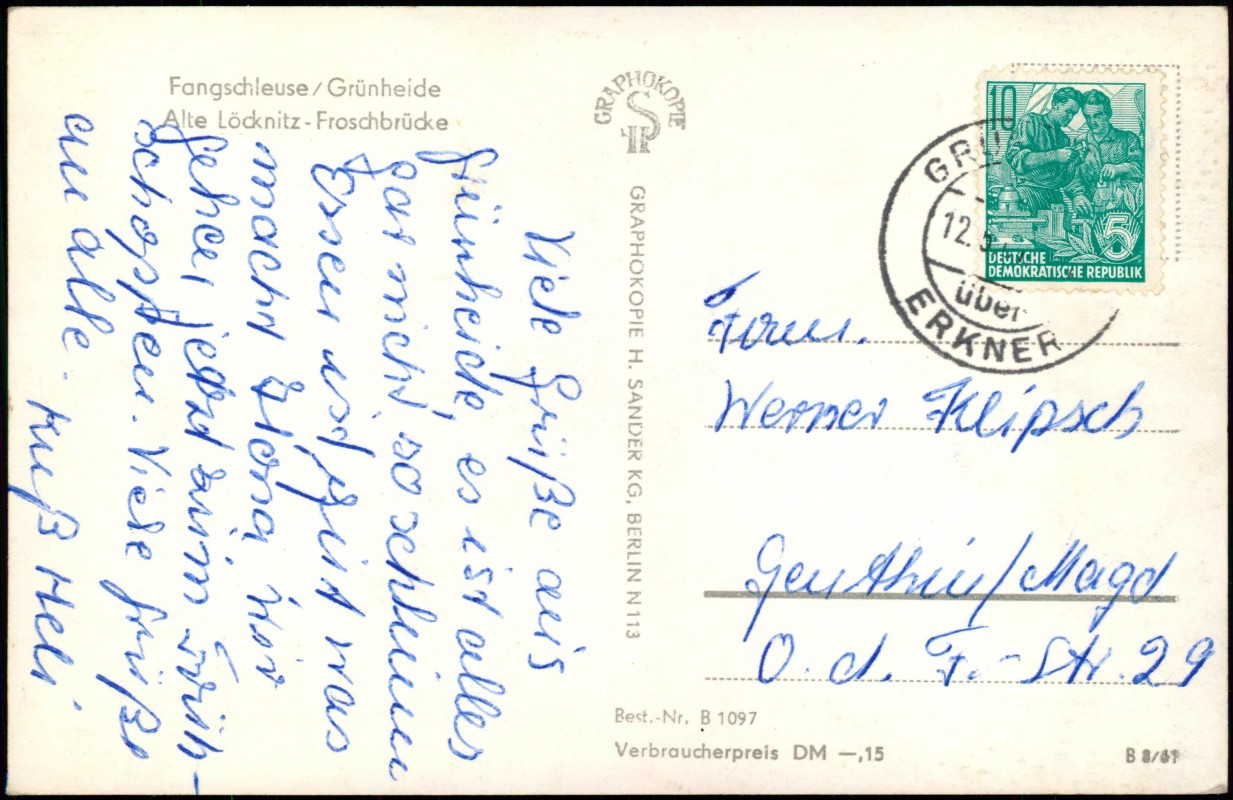 Fangschleuse/Grünheide
Alte Löcknitz-Froschbrücke
GRAPHOKOPIE
H S
GRAPHOKOPIE H. SANDER KG, BERLIN N 113
Viele Grüße aus
Grünheide, es ist alles
gar nicht so schlimm
Essen ist gut was
macht Ilona, wir
gehen jetzt zum Früh-
schoppen. Viele Grüße
an alle. Kuß Heli.
10
5
DEUTSCHE
DEMOKRATISCHE REPUBLIK
12.
über
ERKNER
Fam.
Werner Klipsch
Genthin/Magd
O. d. F.-Str. 29
Best.-Nr. B 1097
Verbraucherpreis DM —,15